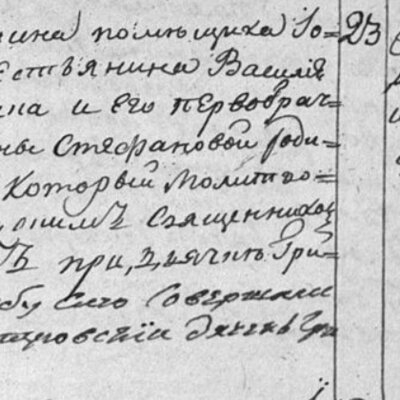 ина помѣщика Іо= 23
естьянина Василія
ина и его первобрач=
ны Стефановой роди=
который молитво=
онимъ священникомъ
тъ при, дьячкѣ Гри=
бу сего совершали
тровскіи дьяченъ